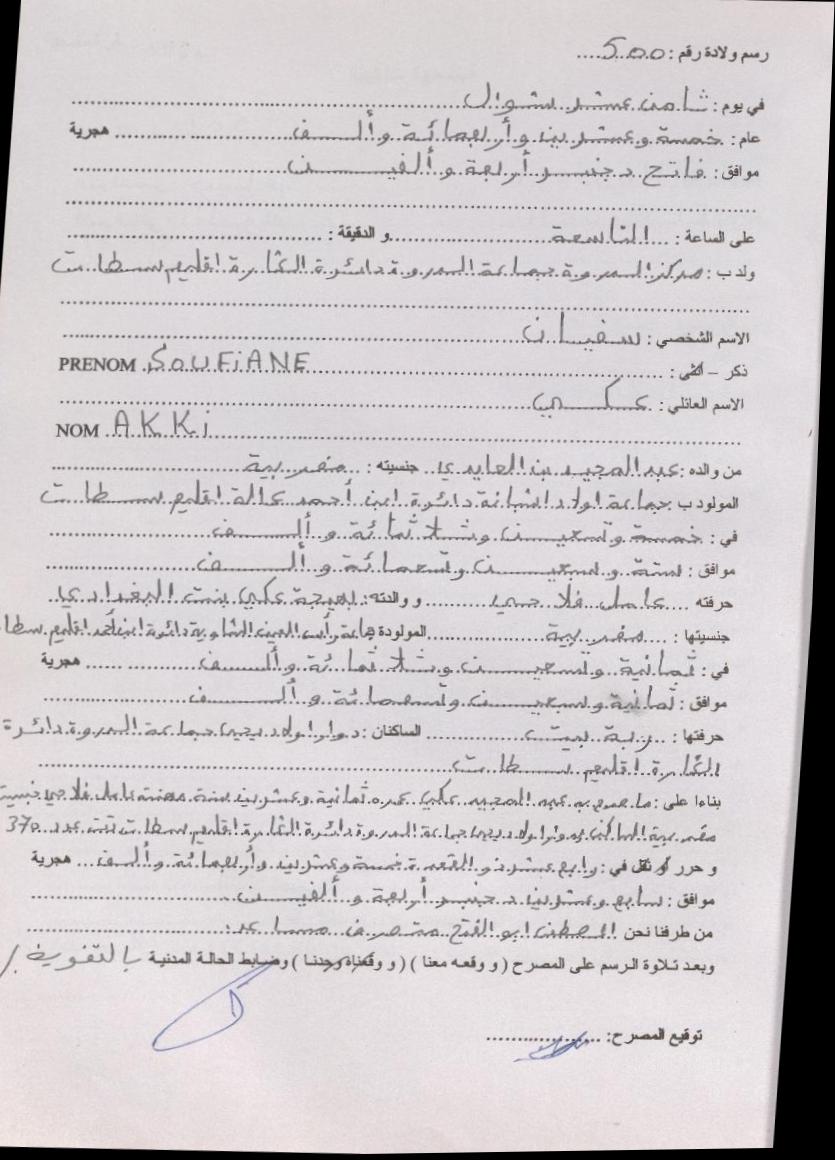 رسم ولادة رقم : 500
في يوم : ثامن عشر شوال
عام : خمسة وعشرين وأربعمائة وألف هجرية
موافق : فاتح دجنبر أربعة وألفين
على الساعة : التاسعة و الدقيقة :
ولد ب : مركز السروة جماعة السروة دائرة اقليم سطات
الاسم الشخصي : سفيان
ذكر – أنثى : PRENOM SOUFiANE
الاسم العائلي : عكي
NOM AKKi
من والده : عبد المجيد بن العايدي جنسيته : مغربية
المولود ب جماعة اولاد دائرة ابن أحمد عمالة اقليم سطات
في : خمسة وتسعين وثلاثمائة وألف
موافق : ستة وسبعين وتسعمائة وألف
حرفته عامل فلاحي و والدته : بهيجة عكي بنت البغدادي
جنسيتها : مغربية المولودة جماعة رأس العين الشاوية دائرة ابن أحمد اقليم سطات
في : ثمانية وتسعين وثلاثمائة وألف هجرية
موافق : ثمانية وسبعين وتسعمائة وألف
حرفتها : ربة بيت الساكنان : دوار اولاد يحيى جماعة السروة دائرة
اقليم سطات
بناءا على : ما صرح به عبد المجيد عكي عمره ثمانية وعشرين سنة مهنته عامل فلاحي جنسيته
مغربية الساكن دوار اولاد يحيى جماعة السروة دائرة اقليم سطات تحت عدد 370
و حرر أو نقل في : رابع عشر ذو القعدة خمسة وعشرين وأربعمائة وألف هجرية
موافق : سابع وعشرين دجنبر أربعة وألفين
من طرفنا نحن المصطفى ابو الفتح متصرف مساعد
وبعد تلاوة الرسم على المصرح ( و وقعه معنا ) ( و وقعناه وحدنا ) وضابط الحالة المدنية بالتفويض
توقيع المصرح :